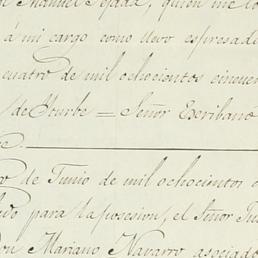 Manuel Tejada, quien me lo
á mi cargo como llevo espresado
cuatro de mil ochocientos cincuen
de Yturbe = Señor Escribano
de Junio de mil ochocientos
para la posesion, el Señor Ju
Don Mariano Navarro asociado